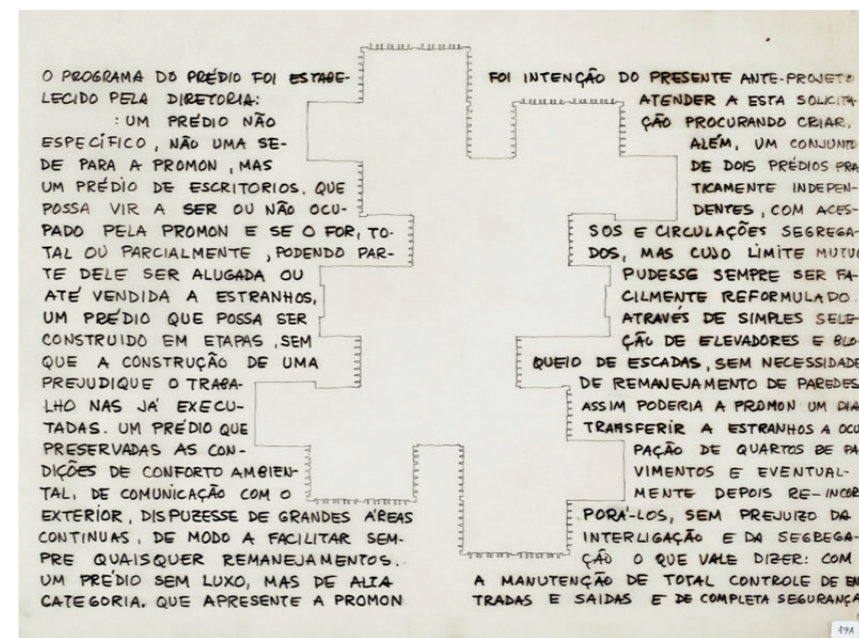 O PROGRAMA DO PRÉDIO FOI ESTABE-
LECIDO PELA DIRETORIA:
: UM PRÉDIO NÃO
ESPECÍFICO, NÃO UMA SE-
DE PARA A PROMON, MAS
UM PRÉDIO DE ESCRITORIOS, QUE
POSSA VIR A SER OU NÃO OCU-
PADO PELA PROMON E SE O FOR, TO-
TAL OU PARCIALMENTE, PODENDO PAR-
TE DELE SER ALUGADA OU
ATÉ VENDIDA A ESTRANHOS,
UM PRÉDIO QUE POSSA SER
CONSTRUIDO EM ETAPAS, SEM
QUE A CONSTRUÇÃO DE UMA
PREJUDIQUE O TRABA-
LHO NAS JÁ EXECU-
TADAS. UM PRÉDIO QUE
PRESERVADAS AS CON-
DIÇÕES DE CONFORTO AMBIEN-
TAL, DE COMUNICAÇÃO COM O
EXTERIOR, DISPUZESSE DE GRANDES ÁREAS
CONTINUAS, DE MODO A FACILITAR SEM-
PRE QUAISQUER REMANEJAMENTOS.
UM PRÉDIO SEM LUXO, MAS DE ALTA
CATEGORIA, QUE APRESENTE A PROMON
FOI INTENÇÃO DO PRESENTE ANTE-PROJETO
ATENDER A ESTA SOLICITA
ÇÃO PROCURANDO CRIAR,
ALÉM, UM CONJUNTO
DE DOIS PRÉDIOS PRA
TICAMENTE INDEPEN-
DENTES, COM ACES-
SOS E CIRCULAÇÕES SEGREGA-
DOS, MAS CUJO LIMITE MUTUO
PUDESSE SEMPRE SER FA-
CILMENTE REFORMULADO
ATRAVÉS DE SIMPLES SELE-
ÇÃO DE ELEVADORES E BLO-
QUEIO DE ESCADAS, SEM NECESSIDADE
DE REMANEJAMENTO DE PAREDES
ASSIM PODERIA A PROMON UM DIA
TRANSFERIR A ESTRANHOS A OCU
PAÇÃO DE QUARTOS DE PA
VIMENTOS E EVENTUAL-
MENTE DEPOIS RE-INCOR
PORÁ-LOS, SEM PREJUIZO DA
INTERLIGAÇÃO E DA SEGREGA-
ÇÃO O QUE VALE DIZER: COM
A MANUTENÇÃO DE TOTAL CONTROLE DE EN
TRADAS E SAIDAS E DE COMPLETA SEGURANÇA